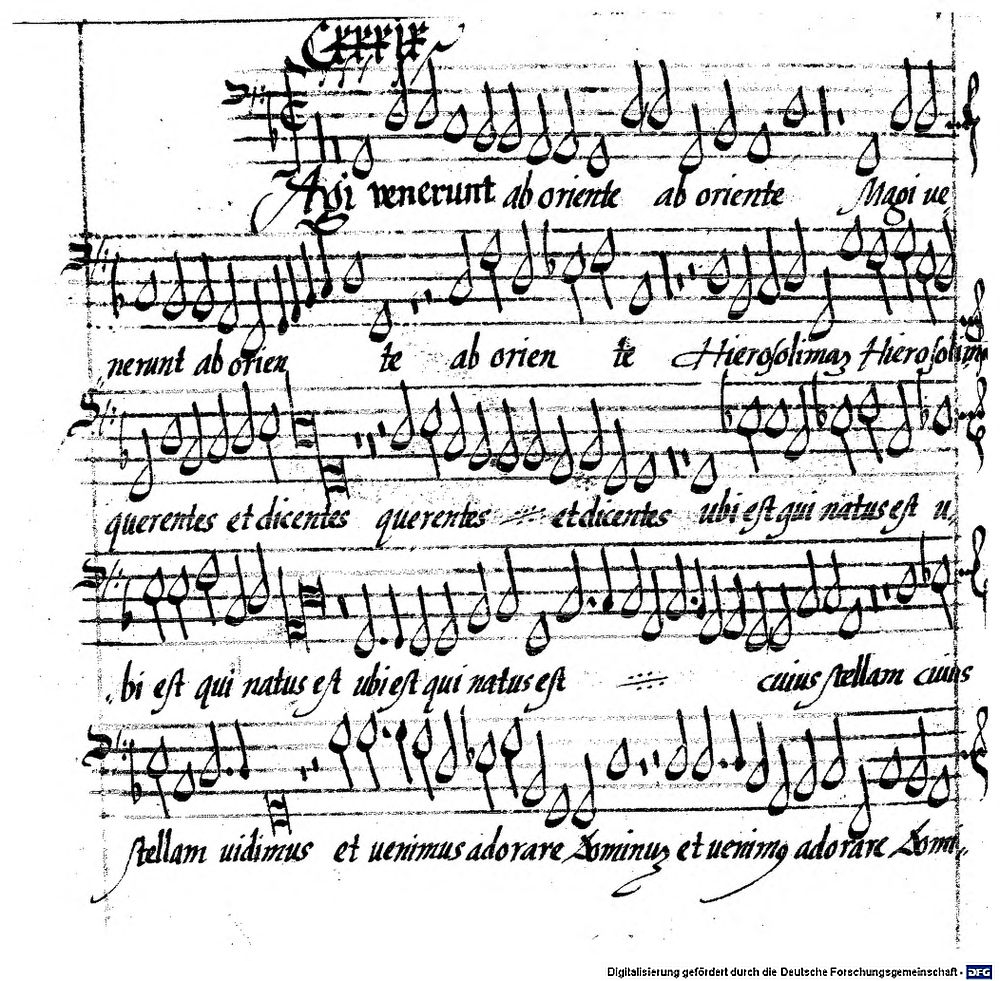 Cxxxix
Agi venerunt ab oriente ab oriente Magi ve
nerunt ab orien te ab orien te Hierosolimaz Hierosolim
querentes et dicentes querentes et dicentes ubi est qui natus est u
bi est qui natus est ubi est qui natus est cuius stellam cuius
stellam vidimus et venimus adorare Dominuz et venimꝰ adorare Domi
Digitalisierung gefördert durch die Deutsche Forschungsgemeinschaft - DFG